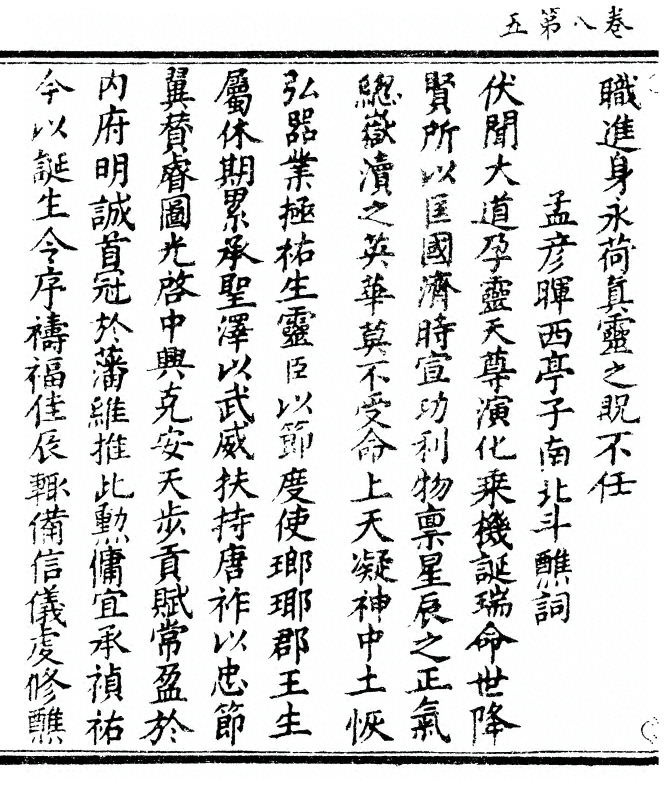 卷八第五
職進身永荷真靈之貺不任
孟彦暉西亭子南北斗醮詞
伏聞大道孕靈天尊演化乗機誕瑞命世降
賢所以匡國濟時宣功利物禀星辰之正氣
緫嶽瀆之英華莫不受命上天凝神中土恢
弘噐業極祐生靈臣以節度使瑯耶郡王生
屬休期累承聖澤以武威扶持唐祚以忠節
翼賛睿圖光啓中興克安天步貢賦常盈於
内府明誠首冠於藩維推此勲庸宜承禎祐
今以誕生令序禱福佳辰輙備信儀虔修醮